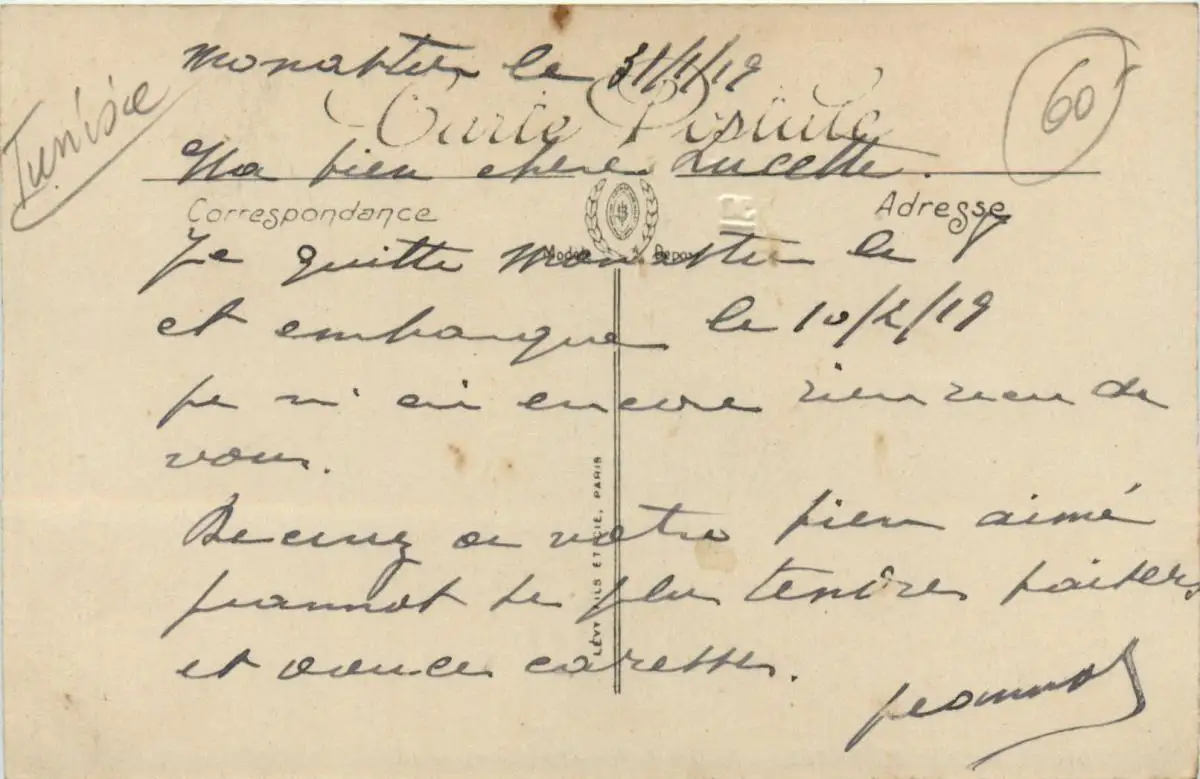 Monastir le 31/1/19
Tunisie
60
Carte Postale
Ma bien chère Lucette.
Correspondance
Adresse
Modèle Déposé
Je quitte Monastir le 7
et embarque le 10/2/19
je n'ai encore rien reçu de
vous.
Recevez de votre bien aimé
Jeannot de plus tendres baisers
et douces caresses.
Jeannot
LÉVY FILS ET CIE, PARIS